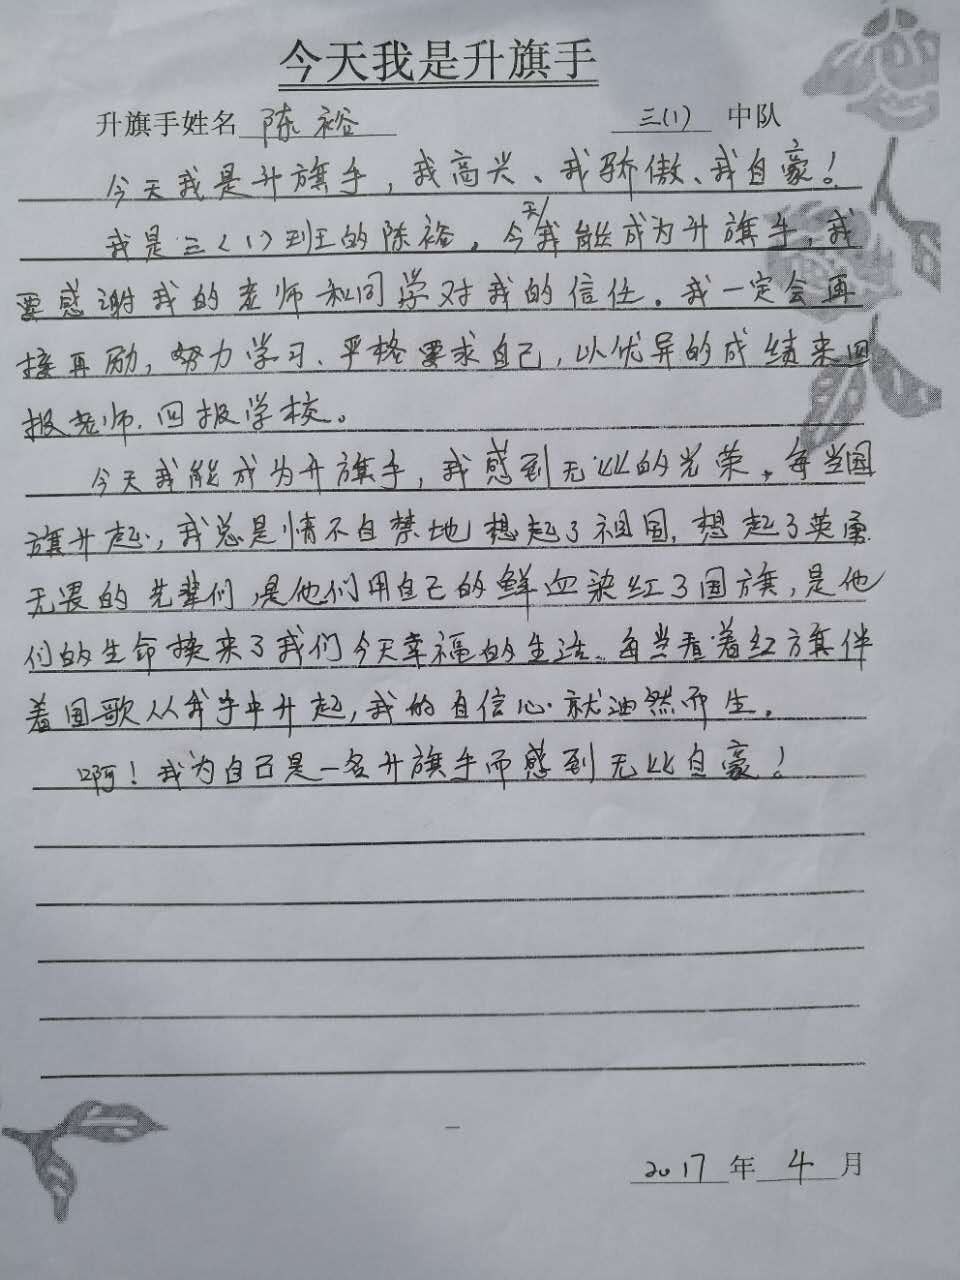 今天我是升旗手
升旗手姓名 陈裕 三(1) 中队
今天我是升旗手，我高兴、我骄傲、我自豪！
我是三(1)到王的陈裕。今天我能成为升旗手，我
要感谢我的老师和同学对我的信任。我一定会再
接再励，努力学习、严格要求自己，以优异的成绩来回
报老师.回报学校。
今天我能成为升旗手，我感到无比的光荣。每当国
旗升起，我总是情不自禁地想起了祖国，想起了英勇
无畏的先辈们，是他们用自己的鲜血染红了国旗，是他
们的生命换来了我们今天幸福的生活。每当看着红旗伴
着国歌从我手中升起，我的自信心就油然而生。
啊！我为自己是一名升旗手而感到无比自豪！
2017年4月